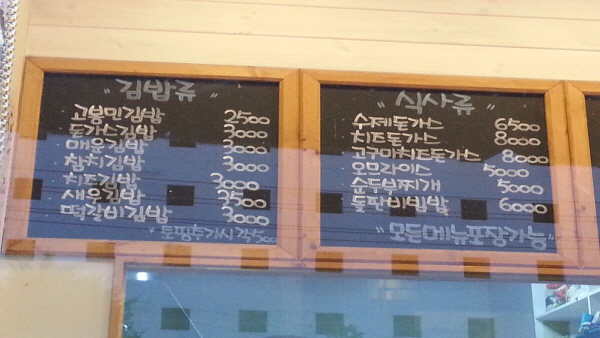 "김밥류"
고봉민김밥 2500
돈가스김밥 3000
매운김밥 3000
참치김밥 3000
치즈김밥 3000
새우김밥 3500
떡갈비김밥 3000
"토핑추가시 각500
"식사류"
수제돈가스 6500
치즈돈가스 8000
고구마치즈돈가스 8000
오므라이스 5000
순두부찌개 5000
돌판비빔밥 6000
"모든메뉴포장가능"